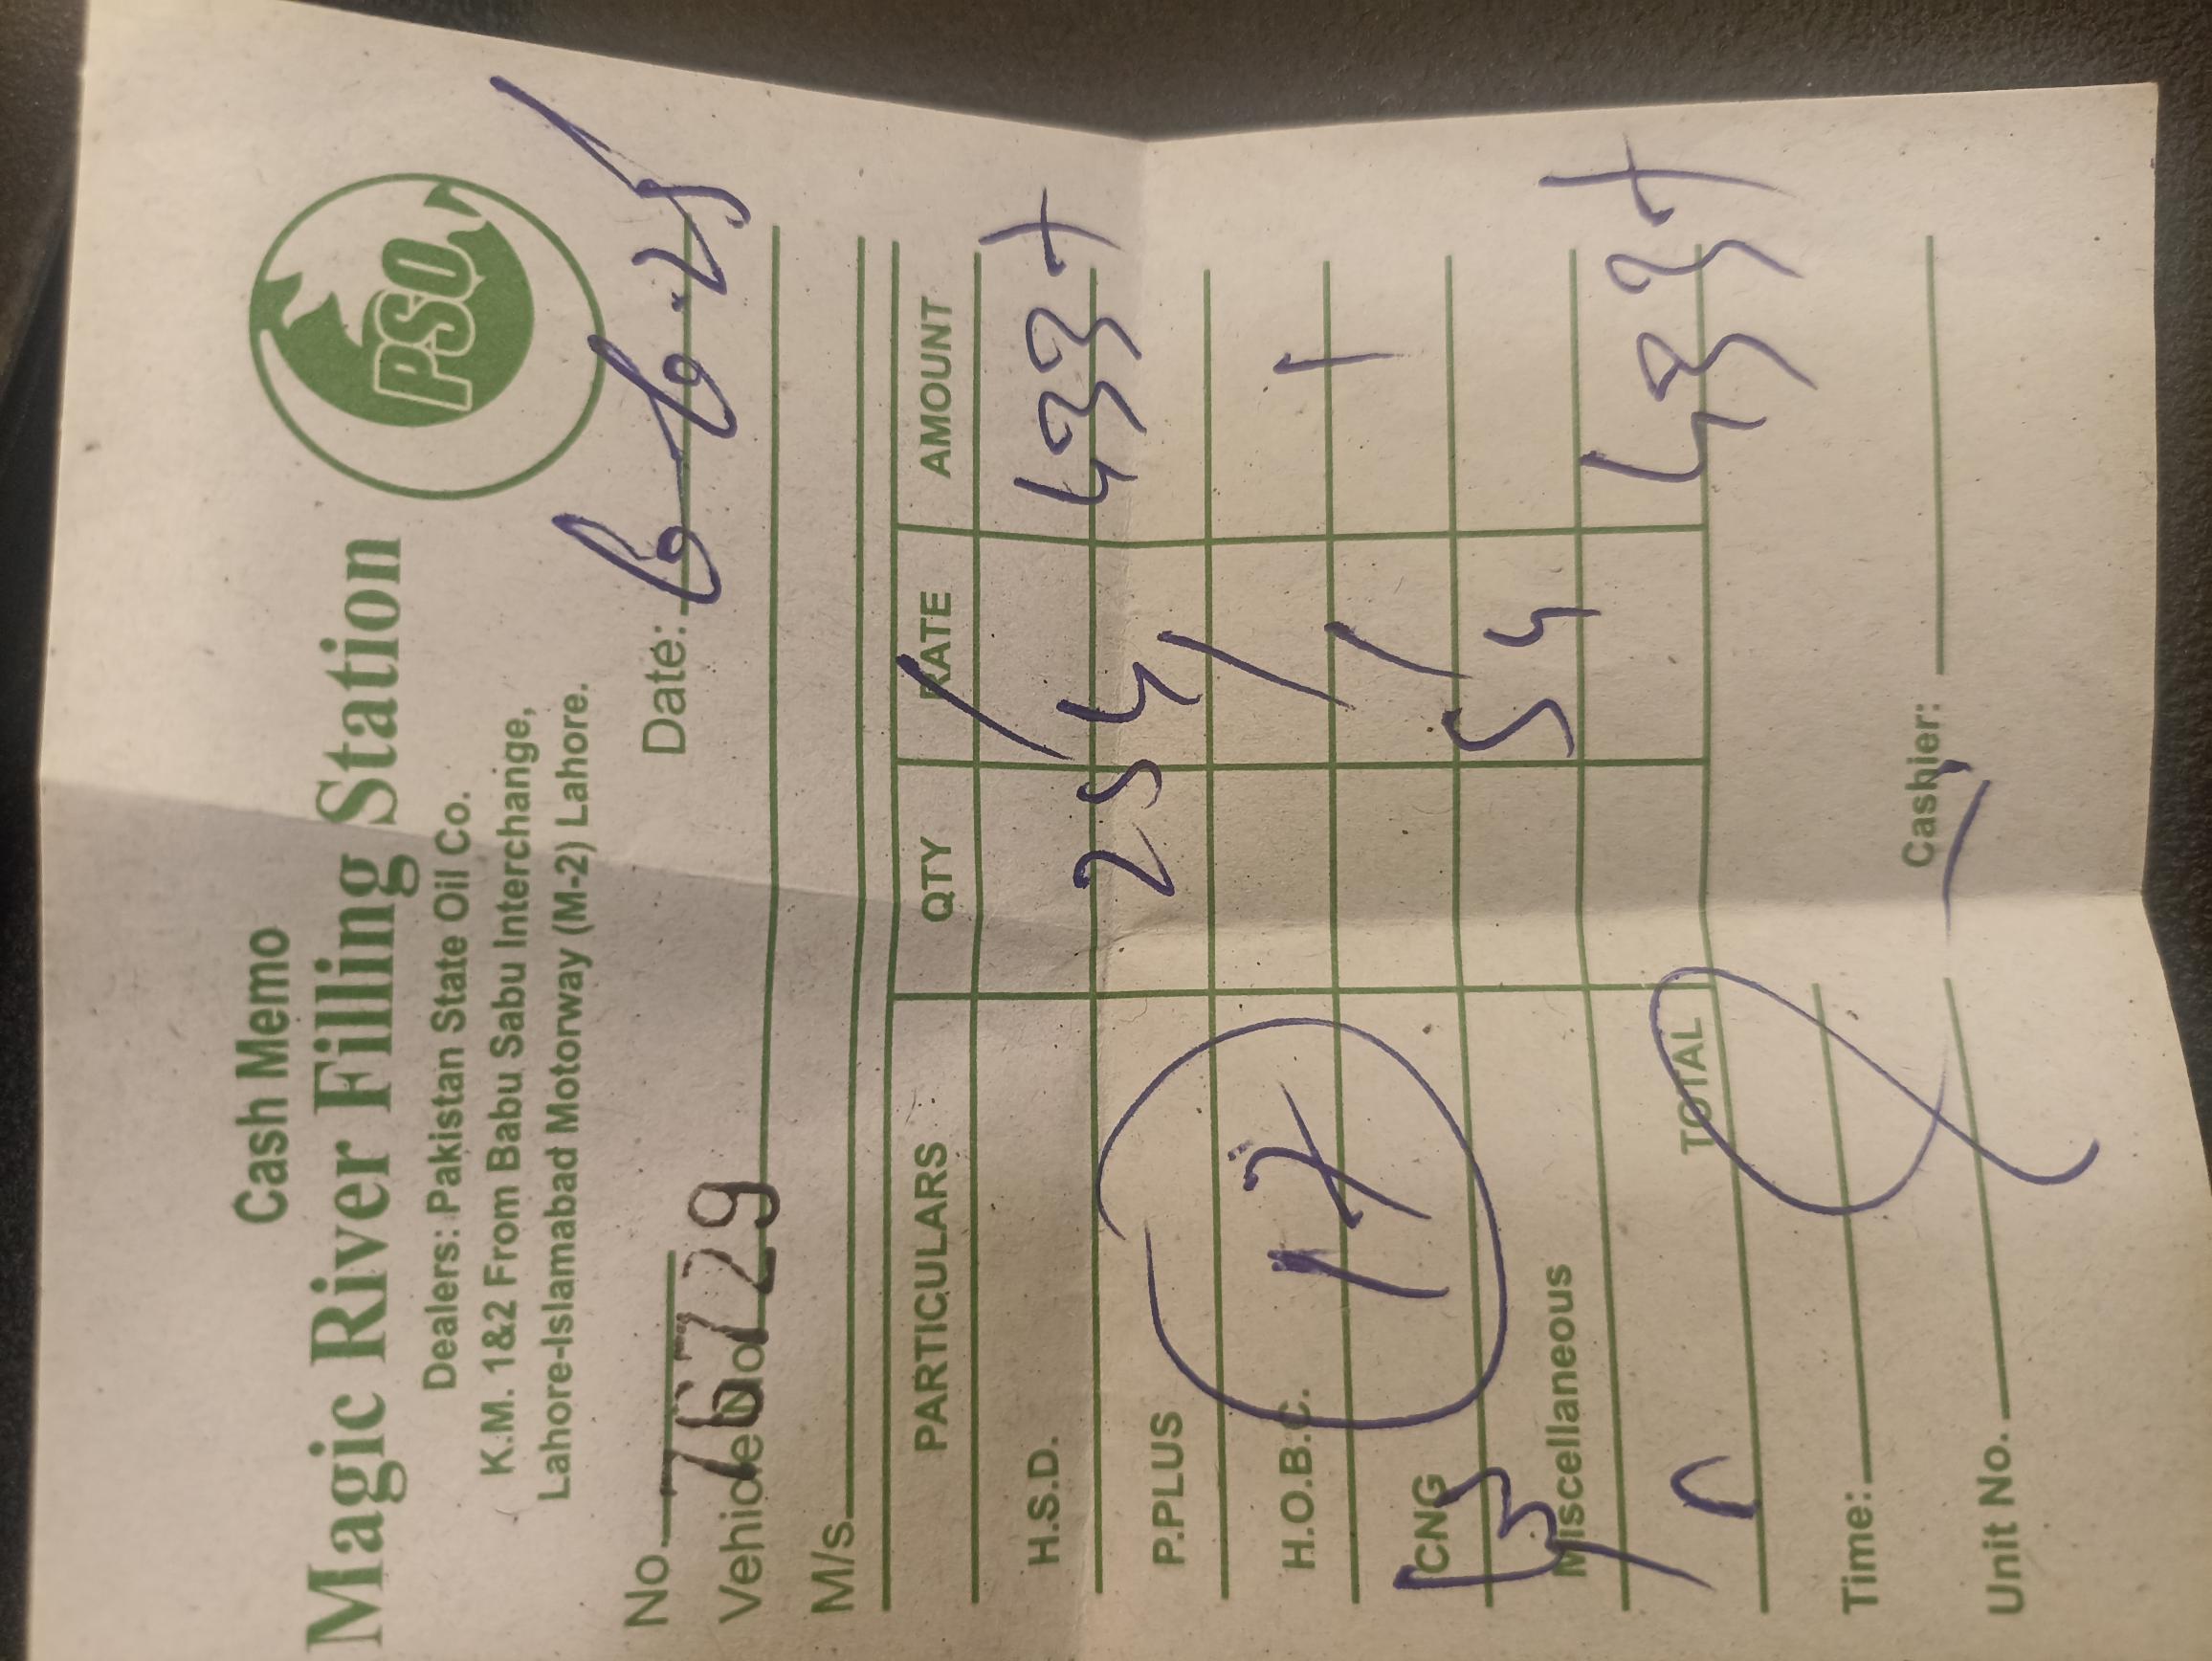 Cash Memo
Magic River Filling Station
PSO
Dealers: Pakistan State Oil Co.
K.M. 1&2 From Babu Sabu Interchange,
Lahore-Islamabad Motorway (M-2) Lahore.
No. 76729
Date: 6-6-25
Vehicle No.
M/s.
PARTICULARS QTY RATE AMOUNT
H.S.D. 4337
P.PLUS 254
H.O.B.C. 17
CNG
Miscellaneous 54
TOTAL 4337
Time:
Cashier:
Unit No.